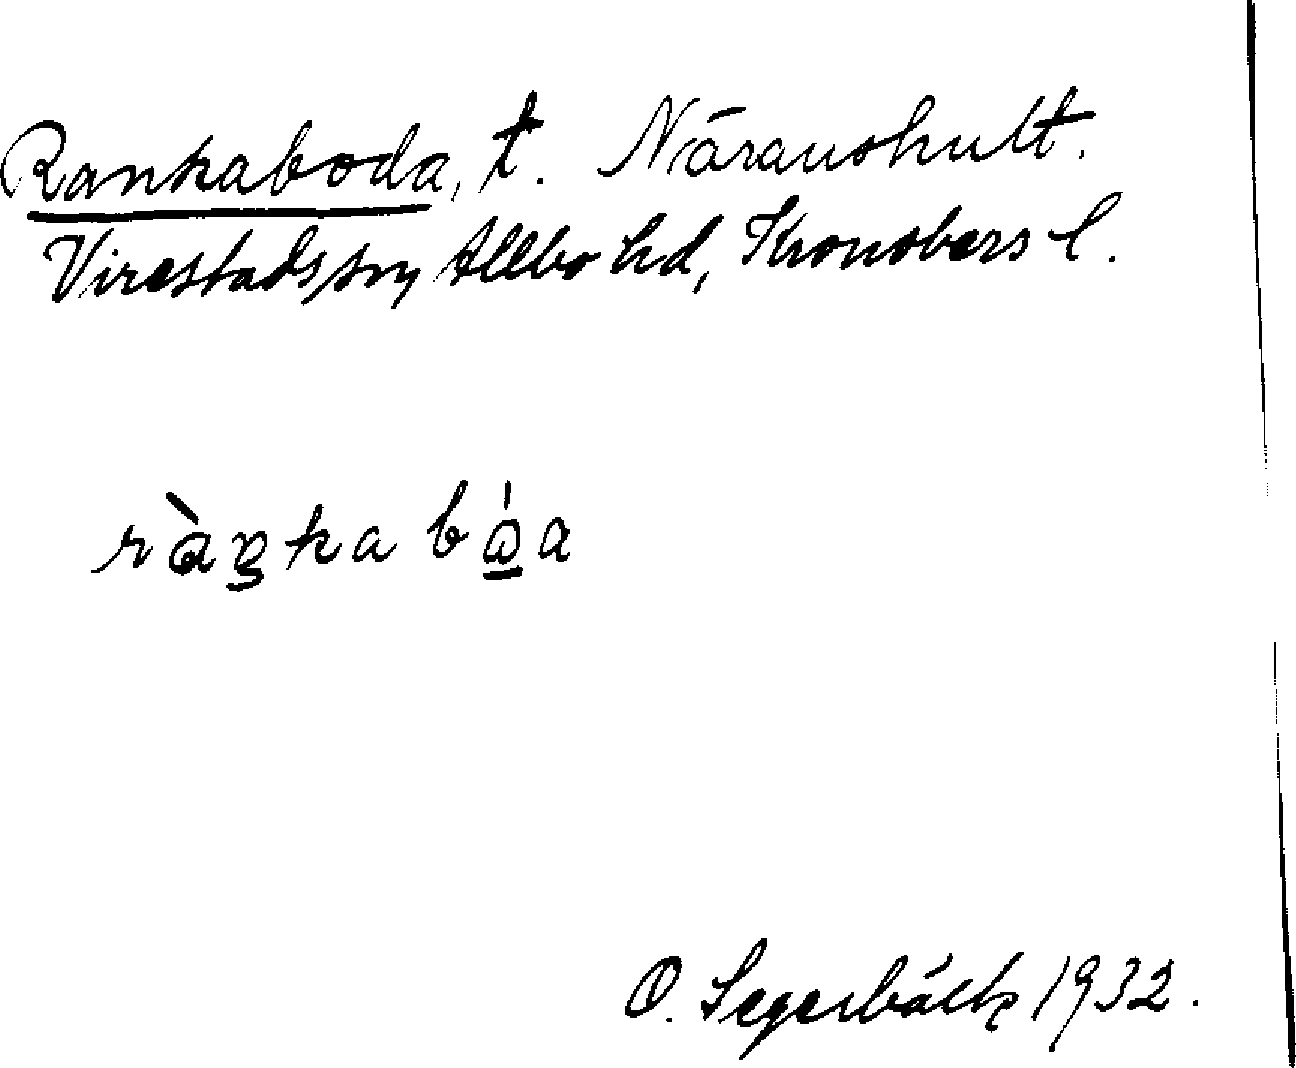 Rankaboda, t. Näraushult.
Virestads sn, Allbo hd, Kronobergs l.
ràŋka bó̲a
O. Segerbäck 1932.